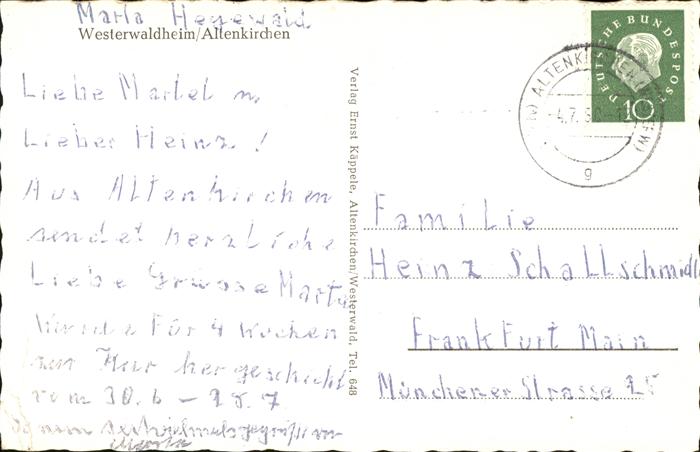 Marta Hegewald
Westerwaldheim/Altenkirchen
Liebe Martel u.
Lieber Heinz!
Aus Altenkirchen
sendet herzliche
Liebe Grüsse Marta
Wurde Für 4 Wochen
zur Kur hergeschickt
vom 30.6 – 28.7
gegrüßt von
Marta
Verlag Ernst Käppele, Altenkirchen/Westerwald, Tel. 648
DEUTSCHE BUNDESPOST
10
ALTENKIRCHEN (WESTERW)
g
Familie
Heinz Schallschmidt
Frankfurt Main
Münchener Strasse 25